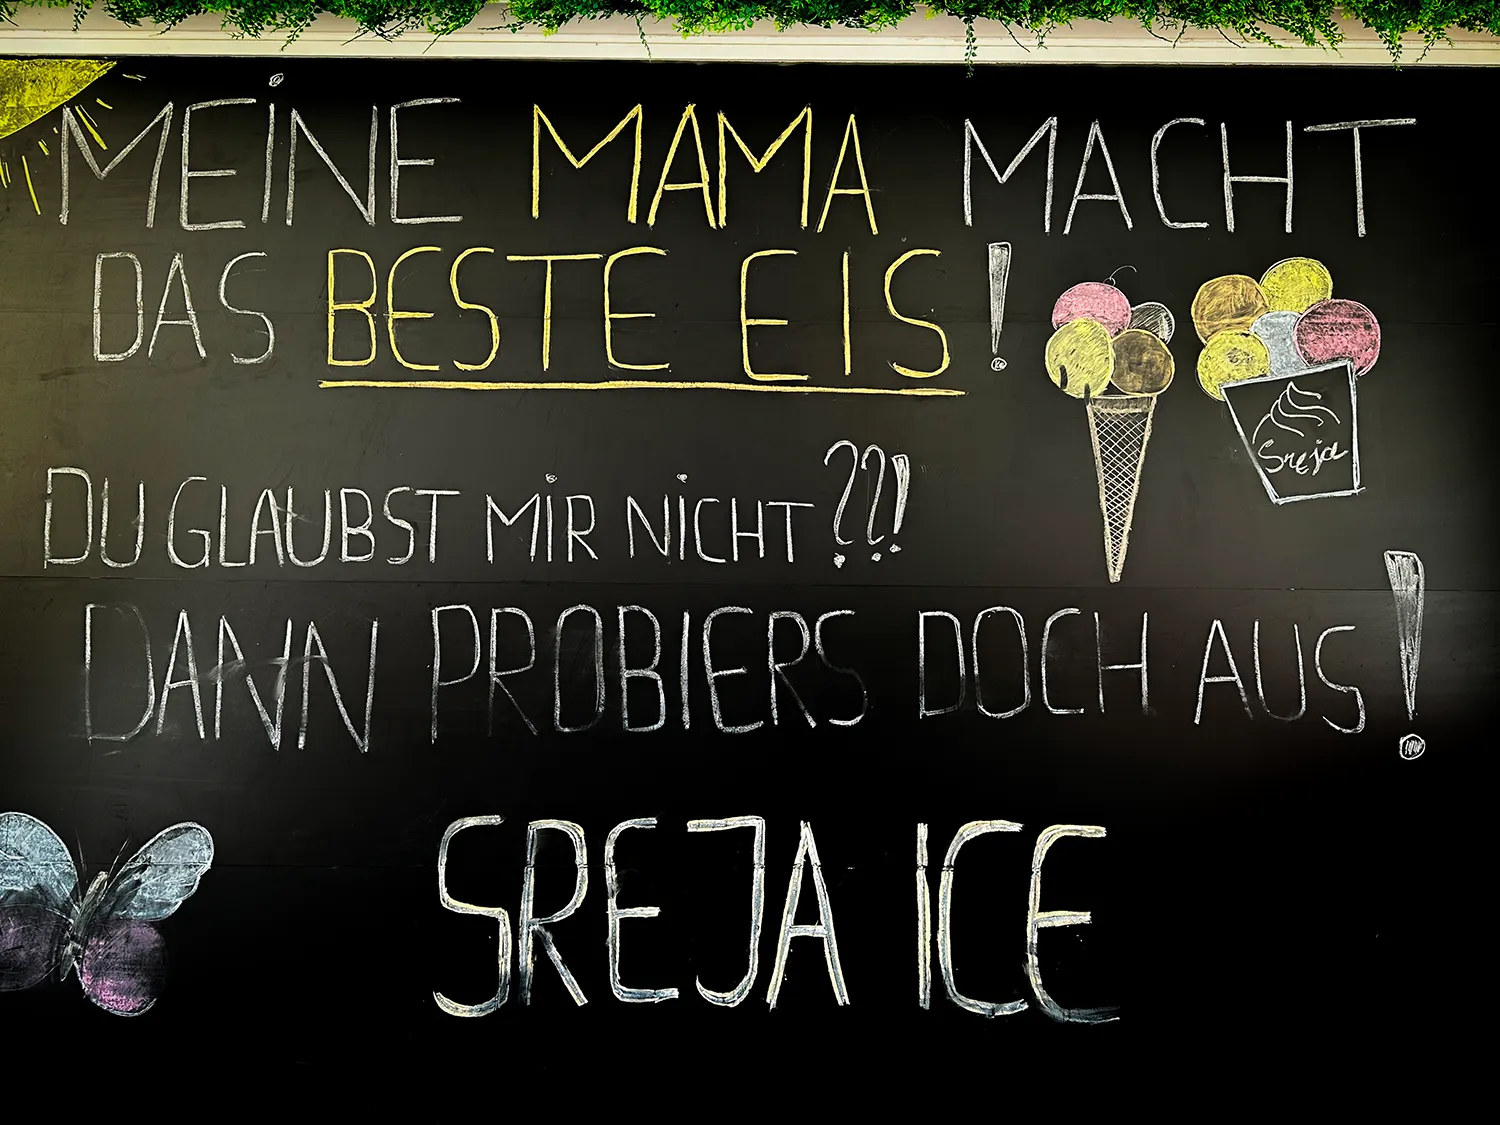 MEiNE MAMA MACHT
DAS BESTE EIS!
Sreja
DU GLAUBST MiR NiCHT??!
DANN PROBIERS DOCH AUS!
SREJA ICE